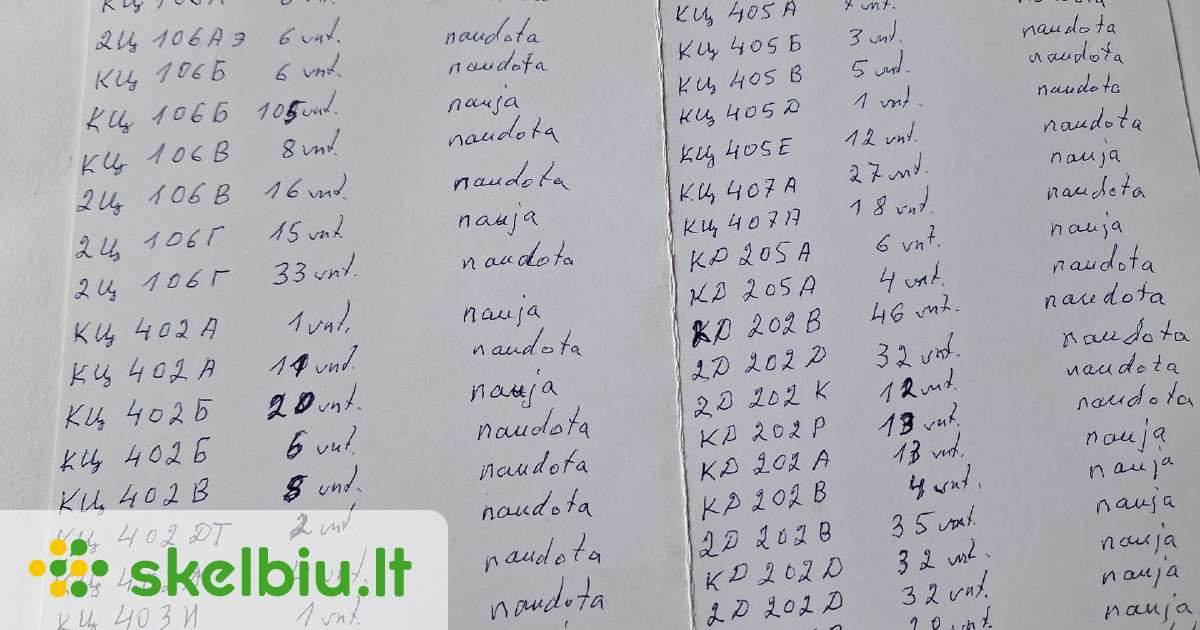 2Ц 106Аэ 6 vnt. naudota
КЦ 106Б 6 vnt. naudota
КЦ 106Б 105 vnt. nauja
КЦ 106В 8 vnt. naudota
2Ц 106В 16 vnt. naudota
2Ц 106Г 15 vnt. nauja
2Ц 106Г 33 vnt. naudota
КЦ 402А 1 vnt. nauja
КЦ 402А 11 vnt. naudota
КЦ 402Б 20 vnt. nauja
КЦ 402Б 6 vnt. naudota
КЦ 402В 5 vnt. naudota
КЦ 402 DT 2 vnt. naudota
КЦ vnt. naudota
КЦ 403И 1 vnt. naudota
КЦ 405А vnt.
КЦ 405Б 3 vnt. naudota
КЦ 405В 5 vnt. naudota
КЦ 405D 1 vnt. naudota
КЦ 405Е 12 vnt. naudota
КЦ 407А 27 vnt. nauja
КЦ 407А 18 vnt. naudota
KD 205A 6 vnt. nauja
KD 205A 4 vnt. naudota
KD 202B 46 vnt. naudota
2D 202D 32 vnt. naudota
2D 202K 12 vnt. naudota
KD 202P 13 vnt. naudota
KD 202A 13 vnt. nauja
KD 202B 4 vnt. nauja
2D 202B 35 vnt. nauja
KD 202D 32 vnt. nauja
2D 202D 32 vnt. nauja
skelbiu.lt